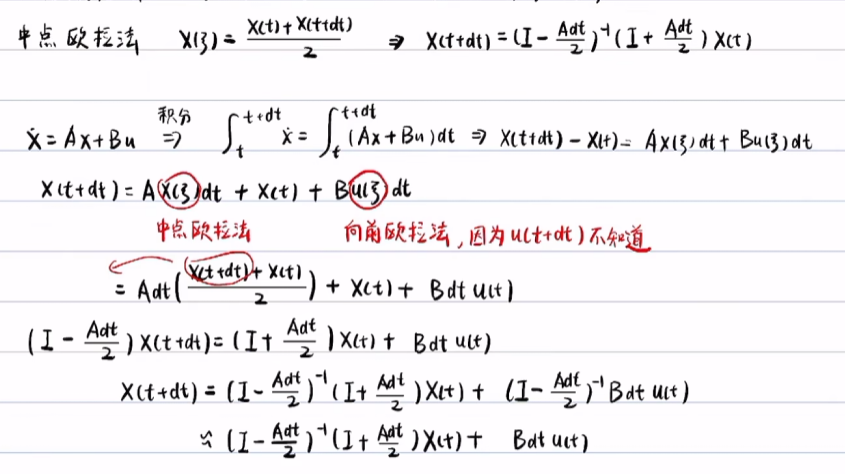 中点欧拉法 X(ξ) = (X(t)+X(t+dt))/2 ⇒ X(t+dt) = (I - Adt/2)⁻¹(I + Adt/2) X(t)
ẋ = Ax+Bu 积分⇒ ∫_t^{t+dt} ẋ = ∫_t^{t+dt} (Ax+Bu)dt ⇒ X(t+dt) - X(t) = AX(ξ)dt + Bu(ξ)dt
X(t+dt) = AX(ξ)dt + X(t) + Bu(ξ)dt
中点欧拉法 向前欧拉法, 因为u(t+dt)不知道
= Adt((X(t+dt)+X(t))/2) + X(t) + Bdt u(t)
(I - Adt/2) X(t+dt) = (I + Adt/2) X(t) + Bdt u(t)
X(t+dt) = (I - Adt/2)⁻¹(I + Adt/2) X(t) + (I - Adt/2)⁻¹ Bdt u(t)
≈ (I - Adt/2)⁻¹(I + Adt/2) X(t) + Bdt u(t)